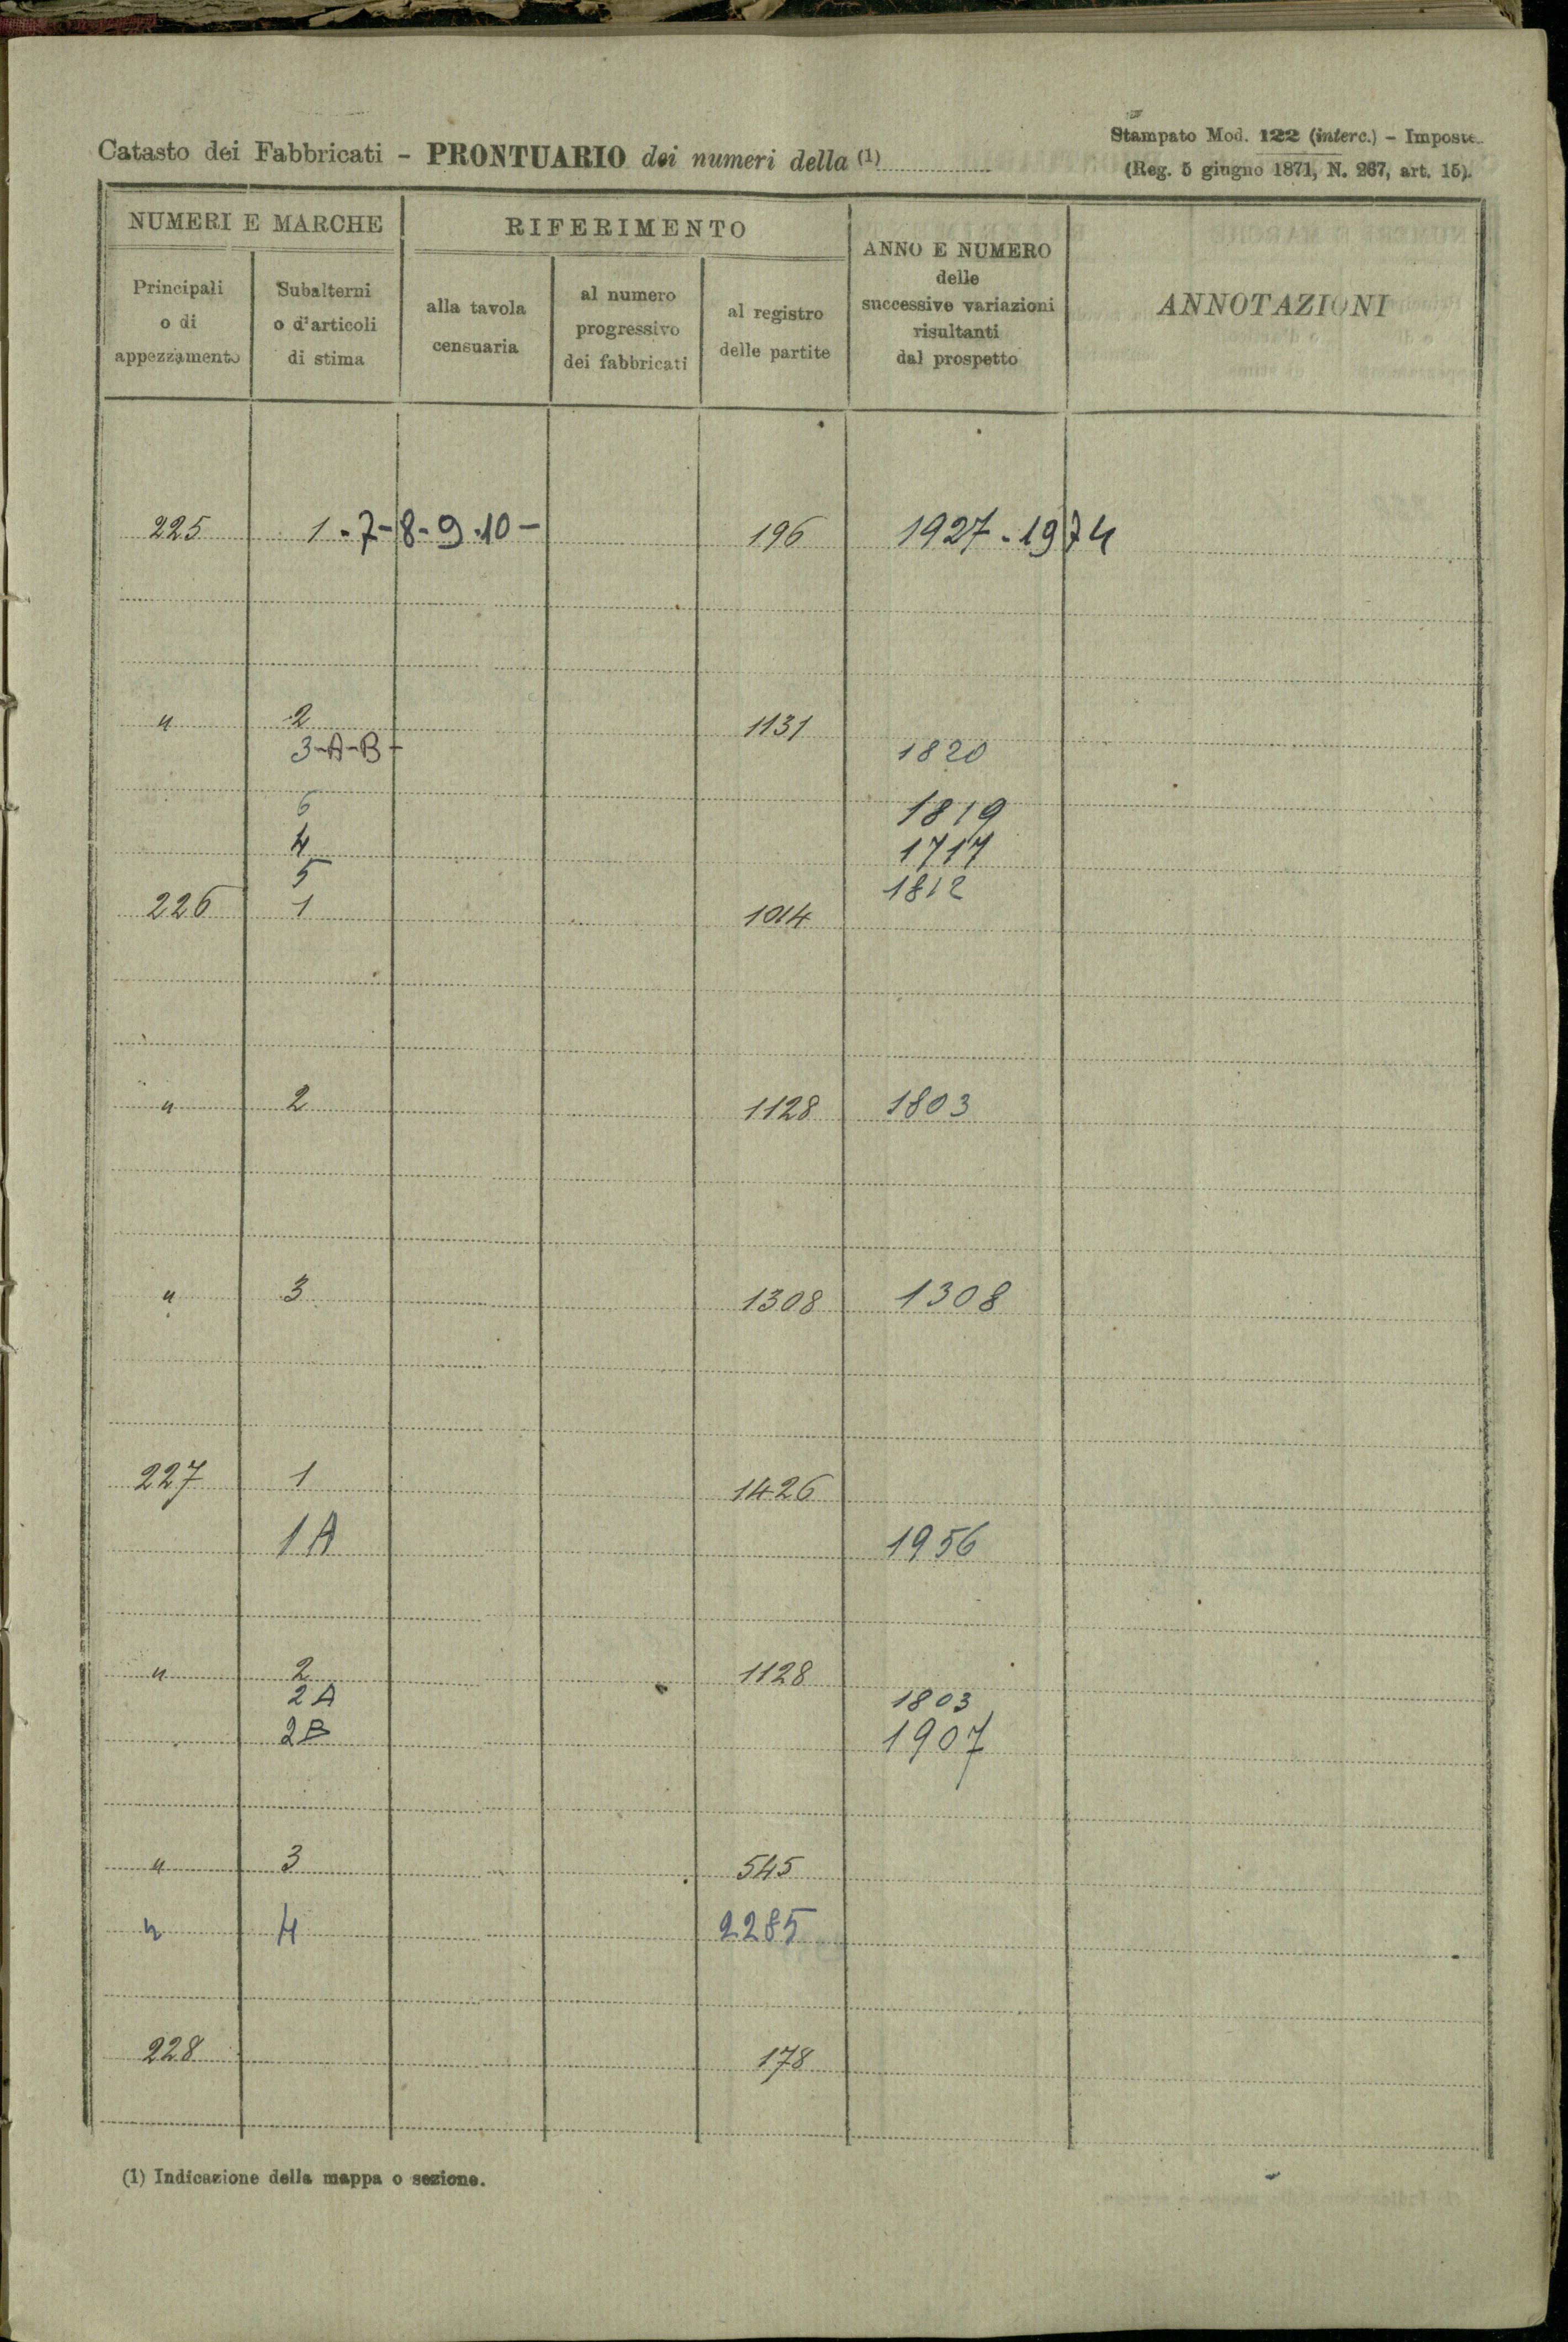 Catasto dei Fabbricati - PRONTUARIO dei numeri della (1)
Stampato Mod. 122 (interc.) - Imposte
(Reg. 5 giugno 1871, N. 267, art. 15).
NUMERI E MARCHE
RIFERIMENTO
ANNO E NUMERO
delle
successive variazioni
risultanti
dal prospetto
ANNOTAZIONI
Principali
o di
appezzamento
Subalterni
o d'articoli
di stima
alla tavola
censuaria
al numero
progressivo
dei fabbricati
al registro
delle partite
225 1-7-8-9-10- 196 1927-1974
" 2 1131
3-A-B- 1820
6 1819
4 1717
5 1812
226 1 1014
" 2 1128 1803
" 3 1308 1308
227 1 1426
1A 1956
" 2 1128
2A 1803
2B 1907
" 3 545
" 4 2285
228 178
(1) Indicazione della mappa o sezione.